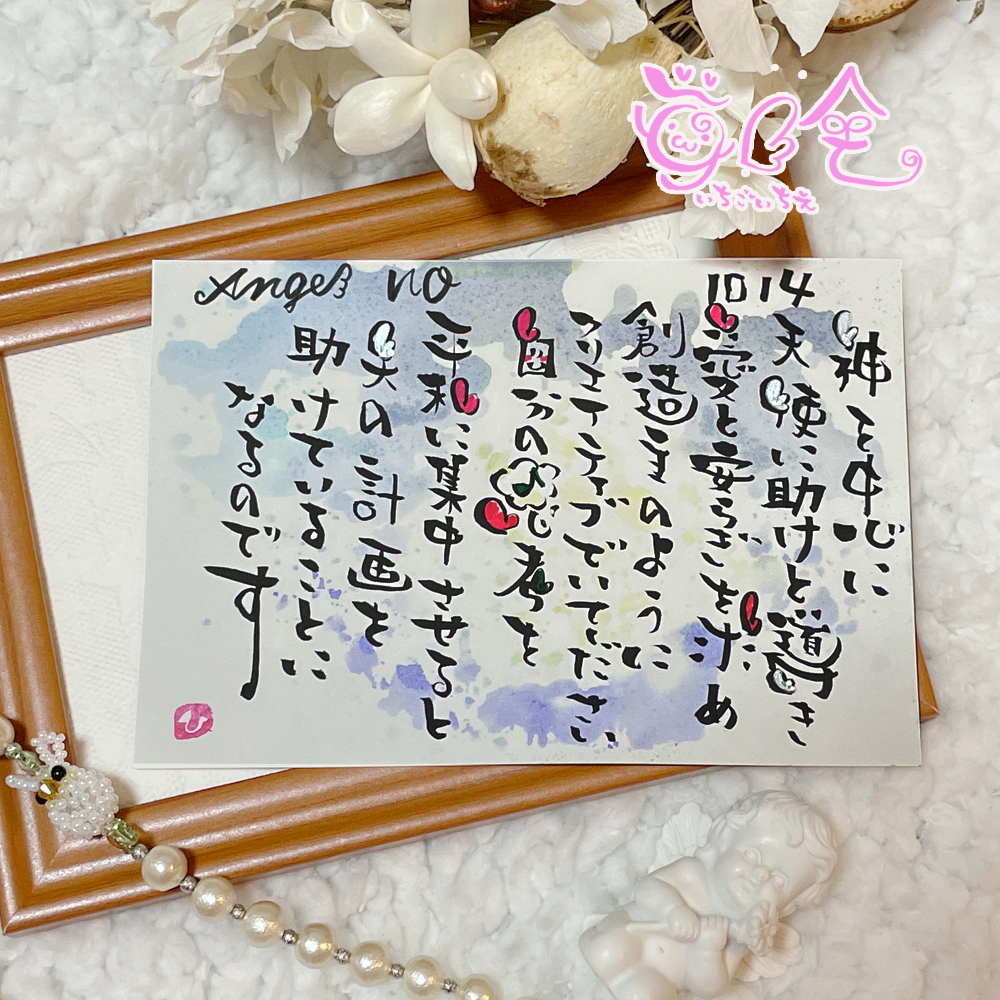 Angel NO 1014
神を中心に
天使に助けと導き
愛と安らぎを求め
創造主のように
クリエイティブでいてください
自分の思考を
平和に集中させると
天の計画を
助けていることに
なるのです
いちごいちえ